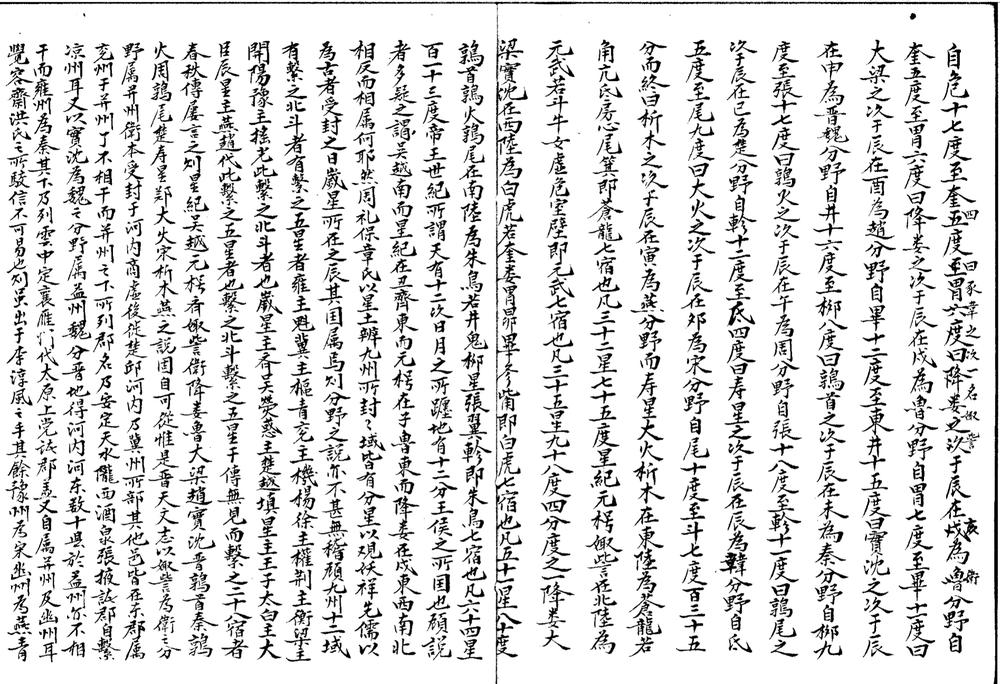 自危十七度至奎五度至胃六度曰降婁之次于辰在戌為魯分野自
四曰豕韋之次一名娵訾
亥衛
奎五度至胃六度曰降婁之次于辰在戌為魯分野自胃七度至畢十一度曰
大梁之次于辰在酉為趙分野自畢十二度至東井十五度曰實沈之次于辰
在申為晉魏分野自井十六度至柳八度曰鶉首之次于辰在未為秦分野自柳九
度至張十七度曰鶉火之次于辰在午為周分野自張十八度至軫十一度曰鶉尾之
次于辰在巳為楚分野自軫十二度至氐四度曰寿星之次于辰在辰為韓分野自氐
五度至尾九度曰大火之次于辰在夘為宋分野自尾十度至斗七度百三十五
分而終曰析木之次于辰在寅為燕分野而寿星大火析木在東陸為蒼龍若
角亢氐房心尾箕即蒼龍七宿也凡三十二星七十五度星紀元枵娵訾在北陸為
元武若斗牛女虛危室壁即元武七宿也凡三十五星九十八度四分度之一降婁大
梁實沈在西陸為白虎若奎婁胃昴畢参觜即白虎七宿也凡五十一星八十度
鶉首鶉火鶉尾在南陸為朱鳥若井鬼柳星張翼軫即朱鳥七宿也凡六十四星
百一十二度帝王世紀所謂天有十二次日月之所躔地有十二分王侯之所国也顧説
者多疑之謂吴越南而星紀在丑齊東而元枵在子魯東而降婁在戌東西南北
相反而相属何耶然周礼保章氏以星土辨九州所封之域皆有分星以观妖祥先儒以
為古者受封之日歲星所在之辰其国属焉则分野之説亦不甚無稽顧九州十二域
有繫之北斗者有繫之五星者雍主魁冀主樞青兗主機楊徐主權荆主衡梁主
開陽豫主搖光此繫之北斗者也歲星主斉吴熒惑主楚越填星主王子太白主大
臣辰星主燕趙代此繫之五星者也繫之北斗繫之五星于傳無見而繫之二十八宿者
春秋傳屡言之则星紀吴越元枵斉娵訾衛降婁魯大梁趙實沈晉鶉首秦鶉
火周鶉尾楚寿星郑大火宋析木燕之説固自可從惟是晋天文志以娵訾為衛之分
野属并州衛本受封于河内商虛後徙楚邱河内乃冀州所部其他邑皆在东郡属
兖州于并州了不相干而并州之下所列郡名乃安定天水隴西酒泉張掖諸郡自繫
凉州耳又以實沈為魏之分野属益州魏分晋地得河内河东数十县於益州亦不相
干而雍州為秦其下乃列雲中定襄雁门代太原上党诸郡盖又自属并州及幽州耳
覺容齋洪氏之所駁信不可易也则虽出于李淳風之手其餘豫州為宋幽州為燕青